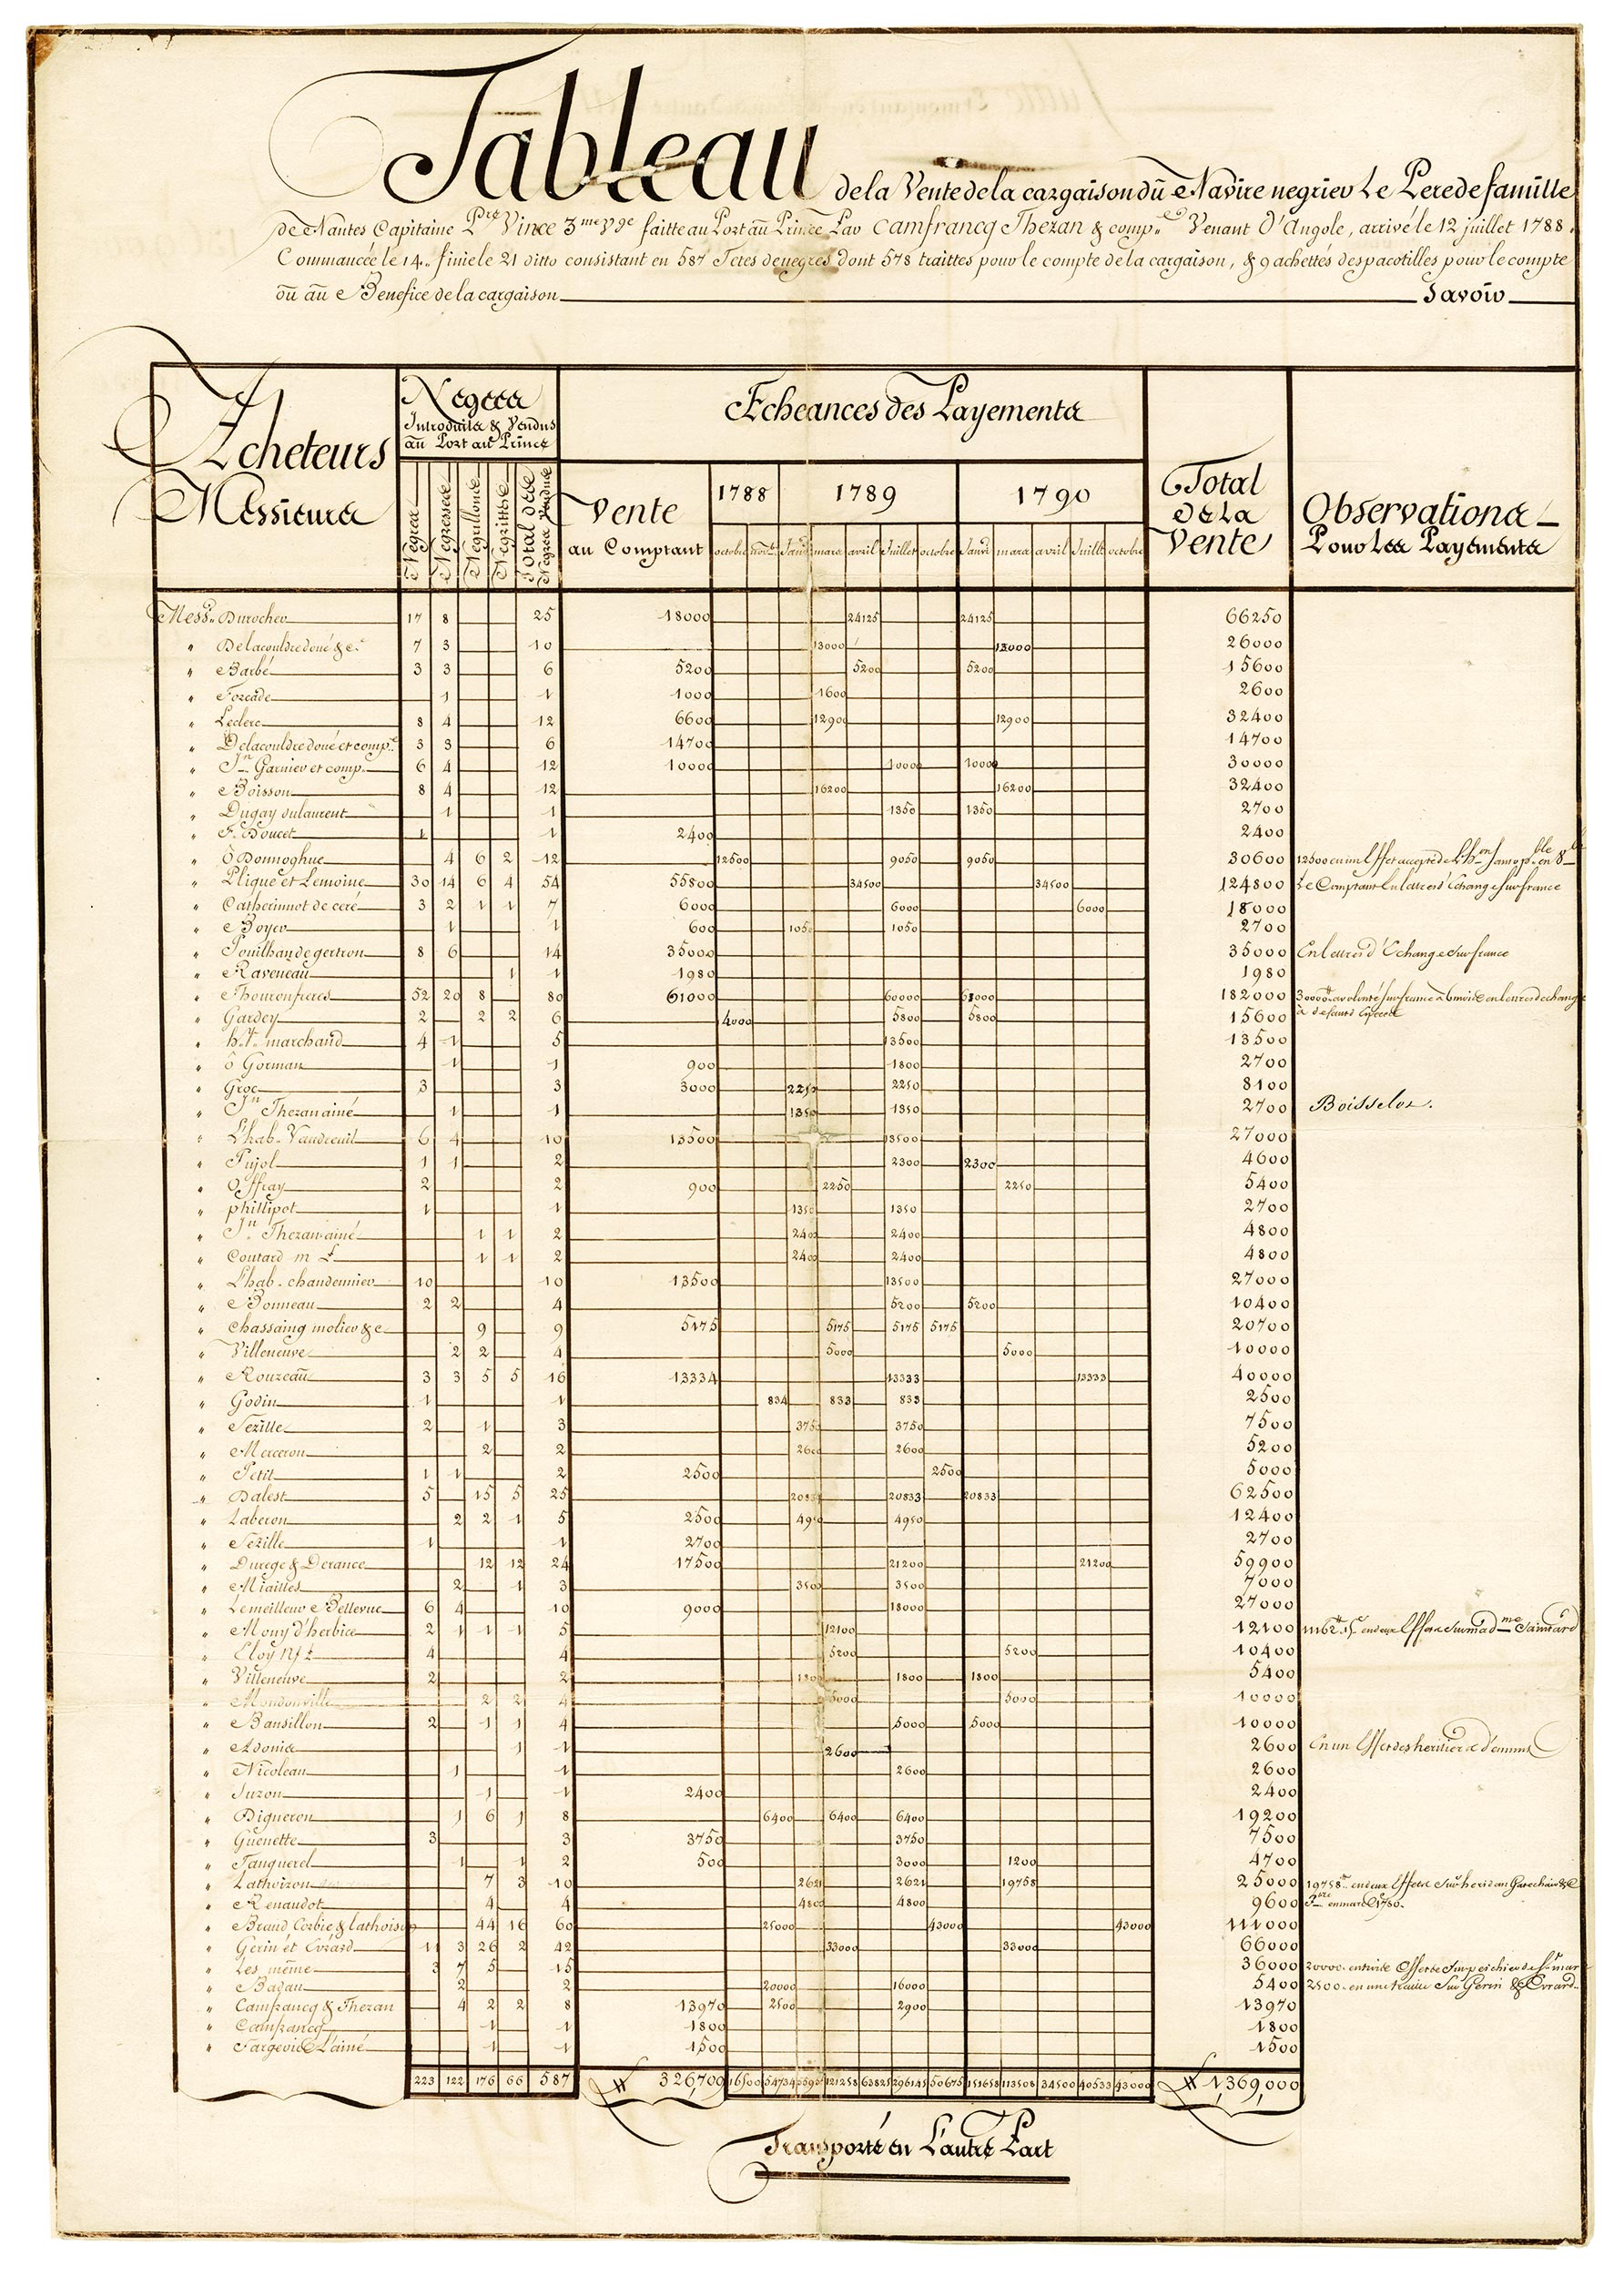 Tableau de la Vente de la cargaison du Navire negrier Le Pere de famille
de Nantes Capitaine Vince 3me vge faitte au Port au Prince Par Camfrancq Thezan & comp. Venant D'Angole, arrivé le 12 juillet 1788.
Commancée le 14. finie le 21 ditto consistant en 587 Tetes de negres dont 578 traittés pour le compte de la cargaison, & 9 achettés des pacotilles pour le compte
ou au Benefice de la cargaison Savoir
Acheteurs Messieurs
Negres Introduits & Vendus au Port au Prince
Negres Negresses Negrillons Negrittes Total des Negres Vendus
Echeances des Payements
Vente au Comptant
1788 1789 1790
octobre Janv. mars avril Juillet octobre Janv. mars avril Juillt octobre
Total de la Vente
Observations Pour Les Payements
Mess. Durocher 17 8 25 18000 24125 24125 66250
" Delacouldredoué & c. 7 3 10 13000 13000 26000
" Barbé 3 3 6 5200 5200 5200 15600
" Forcade 1 1 1000 1600 2600
" Leclerc 8 4 12 6600 12900 12900 32400
" Delacouldredoué et comp. 3 3 6 14700 14700
" Jn. Garnier et comp. 6 4 12 10000 10000 10000 30000
" Boisson 8 4 12 16200 16200 32400
" Dugay dulaurent 1 1 1350 1350 2700
" F. Doucet 1 1 2400 2400
" ô Donnoghue 4 6 2 12 12500 9050 9050 30600 12500 en un Effet accepté de
" Plique et Lemoine 30 14 6 4 54 55800 34500 34500 124800 Le Comptant En lettres d'Echange Sur france
" Catherinnot de ceré 3 2 1 1 7 6000 6000 6000 18000
" Boyer 1 1 600 1050 1050 2700
" Pouilhan de gertron 8 6 14 35000 35000 En lettres d'Echange Sur france
" Raveneau 1 1 1980 1980
" Thouron freres 52 20 8 80 61000 60000 61000 182000 30000 a volonté sur france à 6 mois en lettres de change
" Gardey 2 2 2 6 4000 5800 5800 15600 à defaut Especes
" ht. marchand 4 1 5 13500 13500
" ô Gorman 1 1 900 1800 2700
" Groc 3 3 3000 2250 2250 8100
" Jn Thezan ainé 1 1 1350 1350 2700 Boisselor.
" L'hab. Vaudreuil 6 4 10 13500 13500 27000
" Pujol 1 1 2 2300 2300 4600
" Offray 2 2 900 2250 2250 5400
" phillipot 1 1 1350 1350 2700
" Jn. Thezan ainé 1 1 2 2400 2400 4800
" Coutard m L 1 1 2 2400 2400 4800
" L'hab. chandennier 10 10 13500 13500 27000
" Bonneau 2 2 4 5200 5200 10400
" Chassaing molier & c 9 9 5175 5175 5175 5175 20700
" Villeneuve 2 2 4 5000 5000 10000
" Rouzeau 3 3 5 5 16 13334 13333 13333 40000
" Godin 1 1 834 833 833 2500
" Sezille 2 1 3 3750 3750 7500
" Merceron 2 2 2600 2600 5200
" Petit 1 1 2 2500 2500 5000
" Dalest 5 15 5 25 20833 20833 20833 62500
" Laberon 2 2 1 5 2500 4950 4950 12400
" Sezille 1 1 2700 2700
" Durege & Derance 12 12 24 17500 21200 21200 59900
" Miailles 2 1 3 3500 3500 7000
" Lemeilleur Bellevue 6 4 10 9000 18000 27000
" Mony d'herbice 2 1 1 1 5 12100 12100 en deux Effets Sur
" Eloy 4 4 5200 5200 10400
" Villeneuve 2 2 1800 1800 1800 5400
" Mondonville 2 2 4 5000 5000 10000
" Bansillon 2 1 1 4 5000 5000 10000
" Adonis 1 1 2600 2600 En un Effet des heritiers
" Nicoleau 1 1 2600 2600
" Suzon 1 1 2400 2400
" Digneron 1 6 1 8 6400 6400 6400 19200
" Guenette 3 3 3750 3750 7500
" Tanquerel 1 1 2 500 3000 1200 4700
" Lathoizon 7 3 10 2621 2621 19758 25000 19758 en deux Effets Sur
" Renaudot 4 4 4800 4800 9600 en mars 1790.
" Braud Corbie & lathoison 44 16 60 25000 43000 43000 111000
" Gerin et Evrard 11 3 26 2 42 33000 33000 66000
" Les même 3 7 5 15 36000 20000 en trois Effets
" Badau 2 2 20000 16000 5400 2500 en une traitte Sur Gerin & Evrard
" Camfrancq & Thezan 4 2 2 8 13970 2500 2900 13970
" Camfrancq 1 1 1800 1800
" L'ainé 1 1 1500 1500
223 122 176 66 587 # 326,709 16500 54734 121258 63825 296145 50675 151658 113508 34500 40533 43000 # 1,369,000
Transporté en L'autre Part